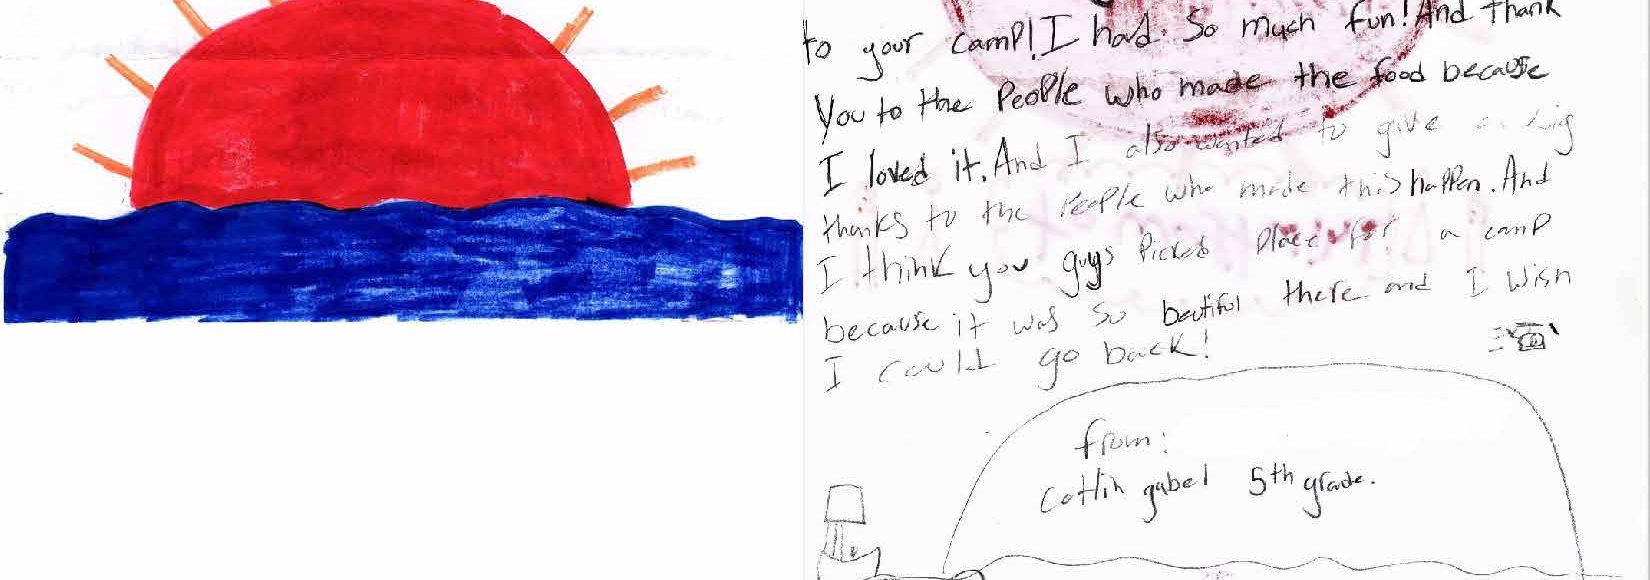 to your camp! I had so much fun! And thank
You to the People who made the food because
I loved it. And I also wanted to give a big
thanks to the People who made this happen. And
I think you guys Picked Place for a camp
because it was so beutiful there and I wish
I could go back!
from:
Catlin gabel 5th grade.